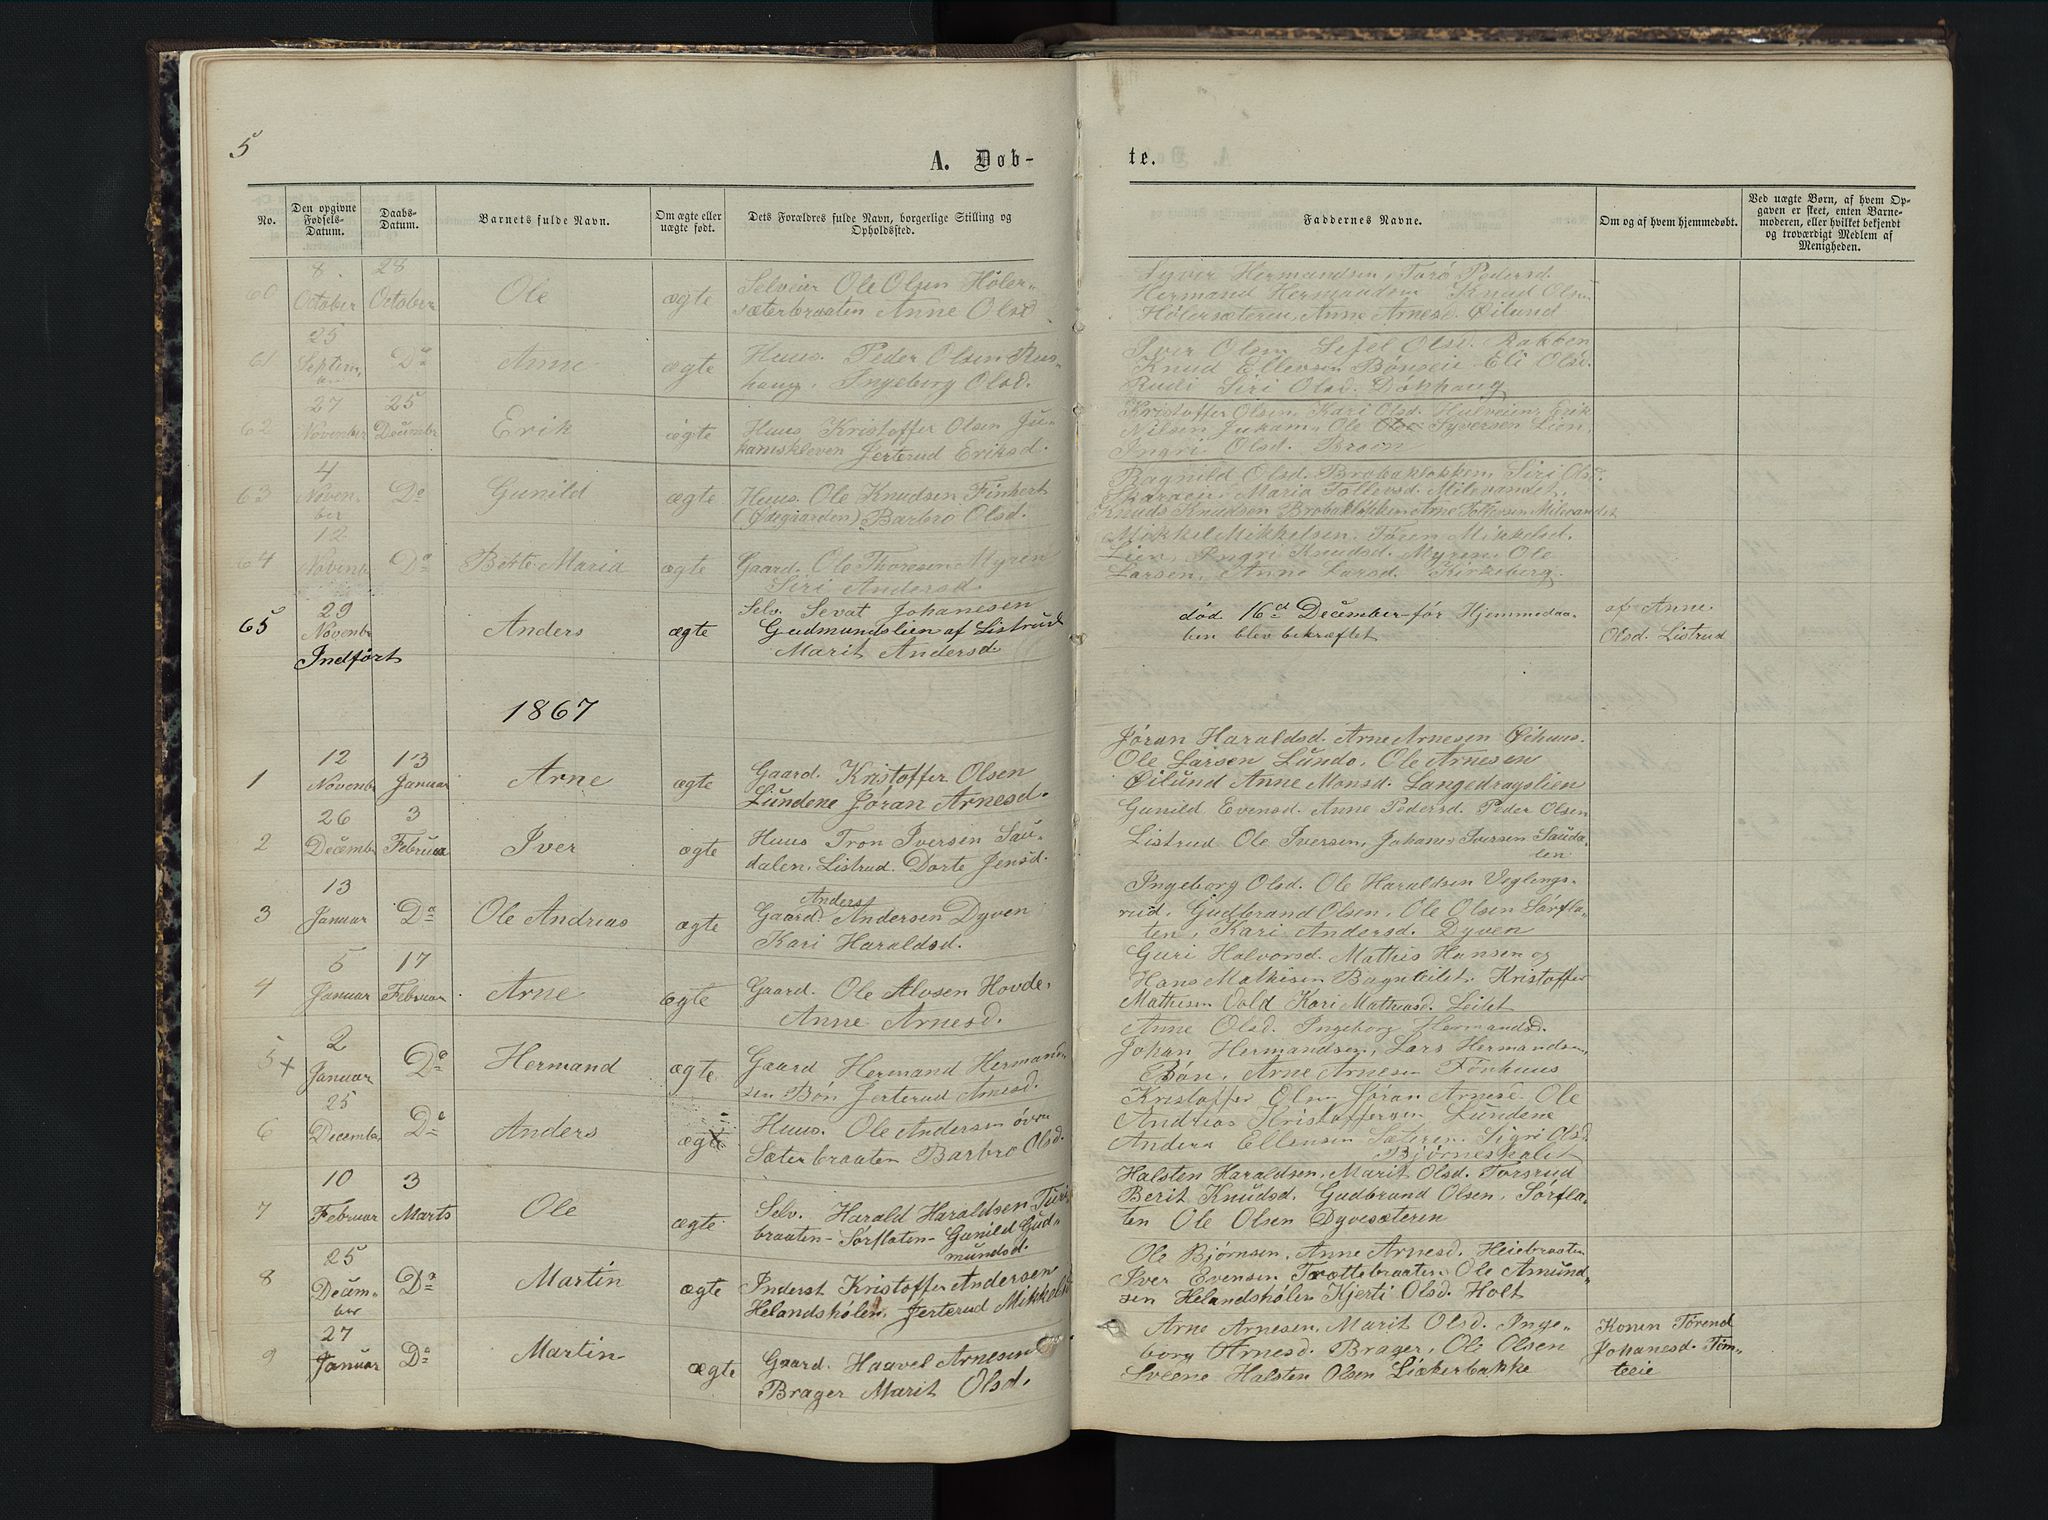 5
A. Døb-
te.
No.
Den opgivne Fødsels-Datum.
Daabs-Datum.
Barnets fulde Navn.
Om ægte eller uægte født.
Dets Forældres fulde Navn, borgerlige Stilling og Opholdssted.
Faddernes Navne.
Om og af hvem hjemmedøbt.
Ved uægte Børn, af hvem Op-
gaven er skeet, enten Barne-
moderen, eller hvilket bekjendt
og troværdigt Medlem af
Menigheden.
60 8. October 28 October Ole ægte
Selveier Ole Olsen Høler-
sæterbraaten Anne Olsd
Syver Hermandsen, Torø Pedersd.
Hermand Hermandsen Knud Olsen
Hølersæteren, Anne Arnesd. Øilund
61 25 Septem-
ber Do Anne ægte
Huus. Peder Olsen Rus-
haug, Ingeborg Olsd.
Iver Olsen Sisel Olsd. Bakken
Knud Ellevsen Bønseie Eli Olsd.
Rudi Siri Olsd. Døkhaug
62 27 November 25 Decembr Erik ægte
Huus Kristoffer Olsen Ju-
kamskleven Jerterud Eriksd.
Kristoffer Olsen, Kari Olsd. Hulveien, Erik
Nilsen Jukam, Ole Syversen Lien,
Ingri Olsd. Broen
63 4 Novem-
ber Do Gunild ægte
Huus. Ole Knudsen Finhert
(Ødegaarden) Barbro Olsd.
Ragnild Olsd. Brobakløkken, Siri Olsd.
Maria Tollevsd. Milevandet,
Knud Knudsen Brobakløkken Arne Tollevsen Milevandet
64 12 Novemb Do Bette Maria ægte
Gaard. Ole Thoresen Myren
Siri Andersd.
Mikkel Mikkelsen, Tøren Mikkelsd.
Lien, Ingri Knudsd. Myren, Ole
Larsen, Anne Larsd. Kirkeberg.
65 29 Novembr Anders ægte
Selv. Sevat Johanesen
Gudmundslien af Listrud
Marit Andersd.
død 16d December før Hjemmedaa-
ben blev bekræftet
af Anne
Olsd. Listrud
Indført
1867
1 12 Novembr 13 Januar Arne ægte
Gaard. Kristoffer Olsen
Lundene Jøran Arnesd.
Jøran Haraldsd. Arne Arnesen Øihuus.
Ole Larsen Lunde, Ole Arnesen
Øilund Anne Monsd. Langedragslien
2 26 Decembr 3 Februar Iver ægte
Huus Tron Iversen Sau-
dalen, Listrud. Dorte Jensd.
Gunild Evensd. Anne Pedersd. Peder Olsen
Listrud Ole Iversen, Johanes Iversen Sauda-
len
3 13 Januar Do Ole Andrias ægte
Anders
Gaard. Andersen Dyven
Kari Haraldsd.
Ingeborg Olsd. Ole Haraldsen Veglings-
rud, Gudbrand Olsen, Ole Olsen Sørfla-
ten, Kari Andersd. Dyven
4 5 Januar 17 Februar Arne ægte
Gaard. Ole Alvsen Hovde,
Anne Arnesd.
Guri Halvorsd. Mathis Hansen og
Hans Mathisen Bagnleitet. Kristoffer
Mathisen Vold Kari Mathiasd. Leitet
5+ 2 Januar Do Hermand ægte
Gaard Hermand Hermand-
sen Bøn Jerterud Arnesd.
Anne Olsd. Ingeborg Hermandsd.
Johan Hermandsen, Lars Hermandsen
Bøn, Arne Arnesen Fønhuus
6 25 December Do Anders ægte
Huus. Ole Andersen øvre
Sæterbraaten Barbro Olsd.
Kristoffer Olsen Jøran Arnesd. Ole
Andrias Kristoffersen Lundene
Anders Ellensen Sæteren. Sigri Olsd.
Bjørneskalet
7 10 Februar 3 Marts Ole ægte
Selv. Harald Haraldsen Turi-
braaten - Sørflaten - Gunild Gud-
mundsd.
Halsten Haraldsen, Marit Olsd. Torsrud
Berit Knudsd. Gudbrand Olsen, Sørfla-
ten Ole Olsen Dyvesæteren
8 25 Decem-
ber Do Martin ægte
Inderst Kristoffer Andersen
Helandshølen, Jerterud Mikkelsd
Ole Bjørnsen, Anne Arnesd. Heiebraaten
Iver Evensen Trættebraaten Ole Amund-
sen Helandshølen Kjerti Olsd. Holt
9 27 Januar Do Martin ægte
Gaard. Haavel Arnesen
Brager Marit Olsd.
Arne Arnesen, Marit Olsd. Inge-
borg Arnesd. Brager, Ole Olsen
Sveene Halsten Olsen Liækerbakke
Konen Tørend
Johanesd. Tøm-
teeie